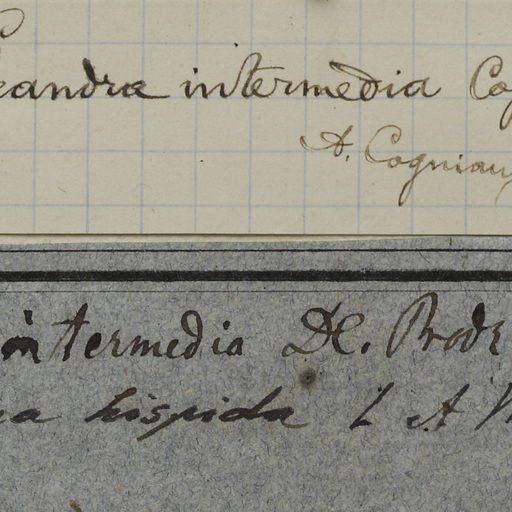 Leandra intermedia Cog
A. Cogniaux
intermedia DC. Prodr
hispida